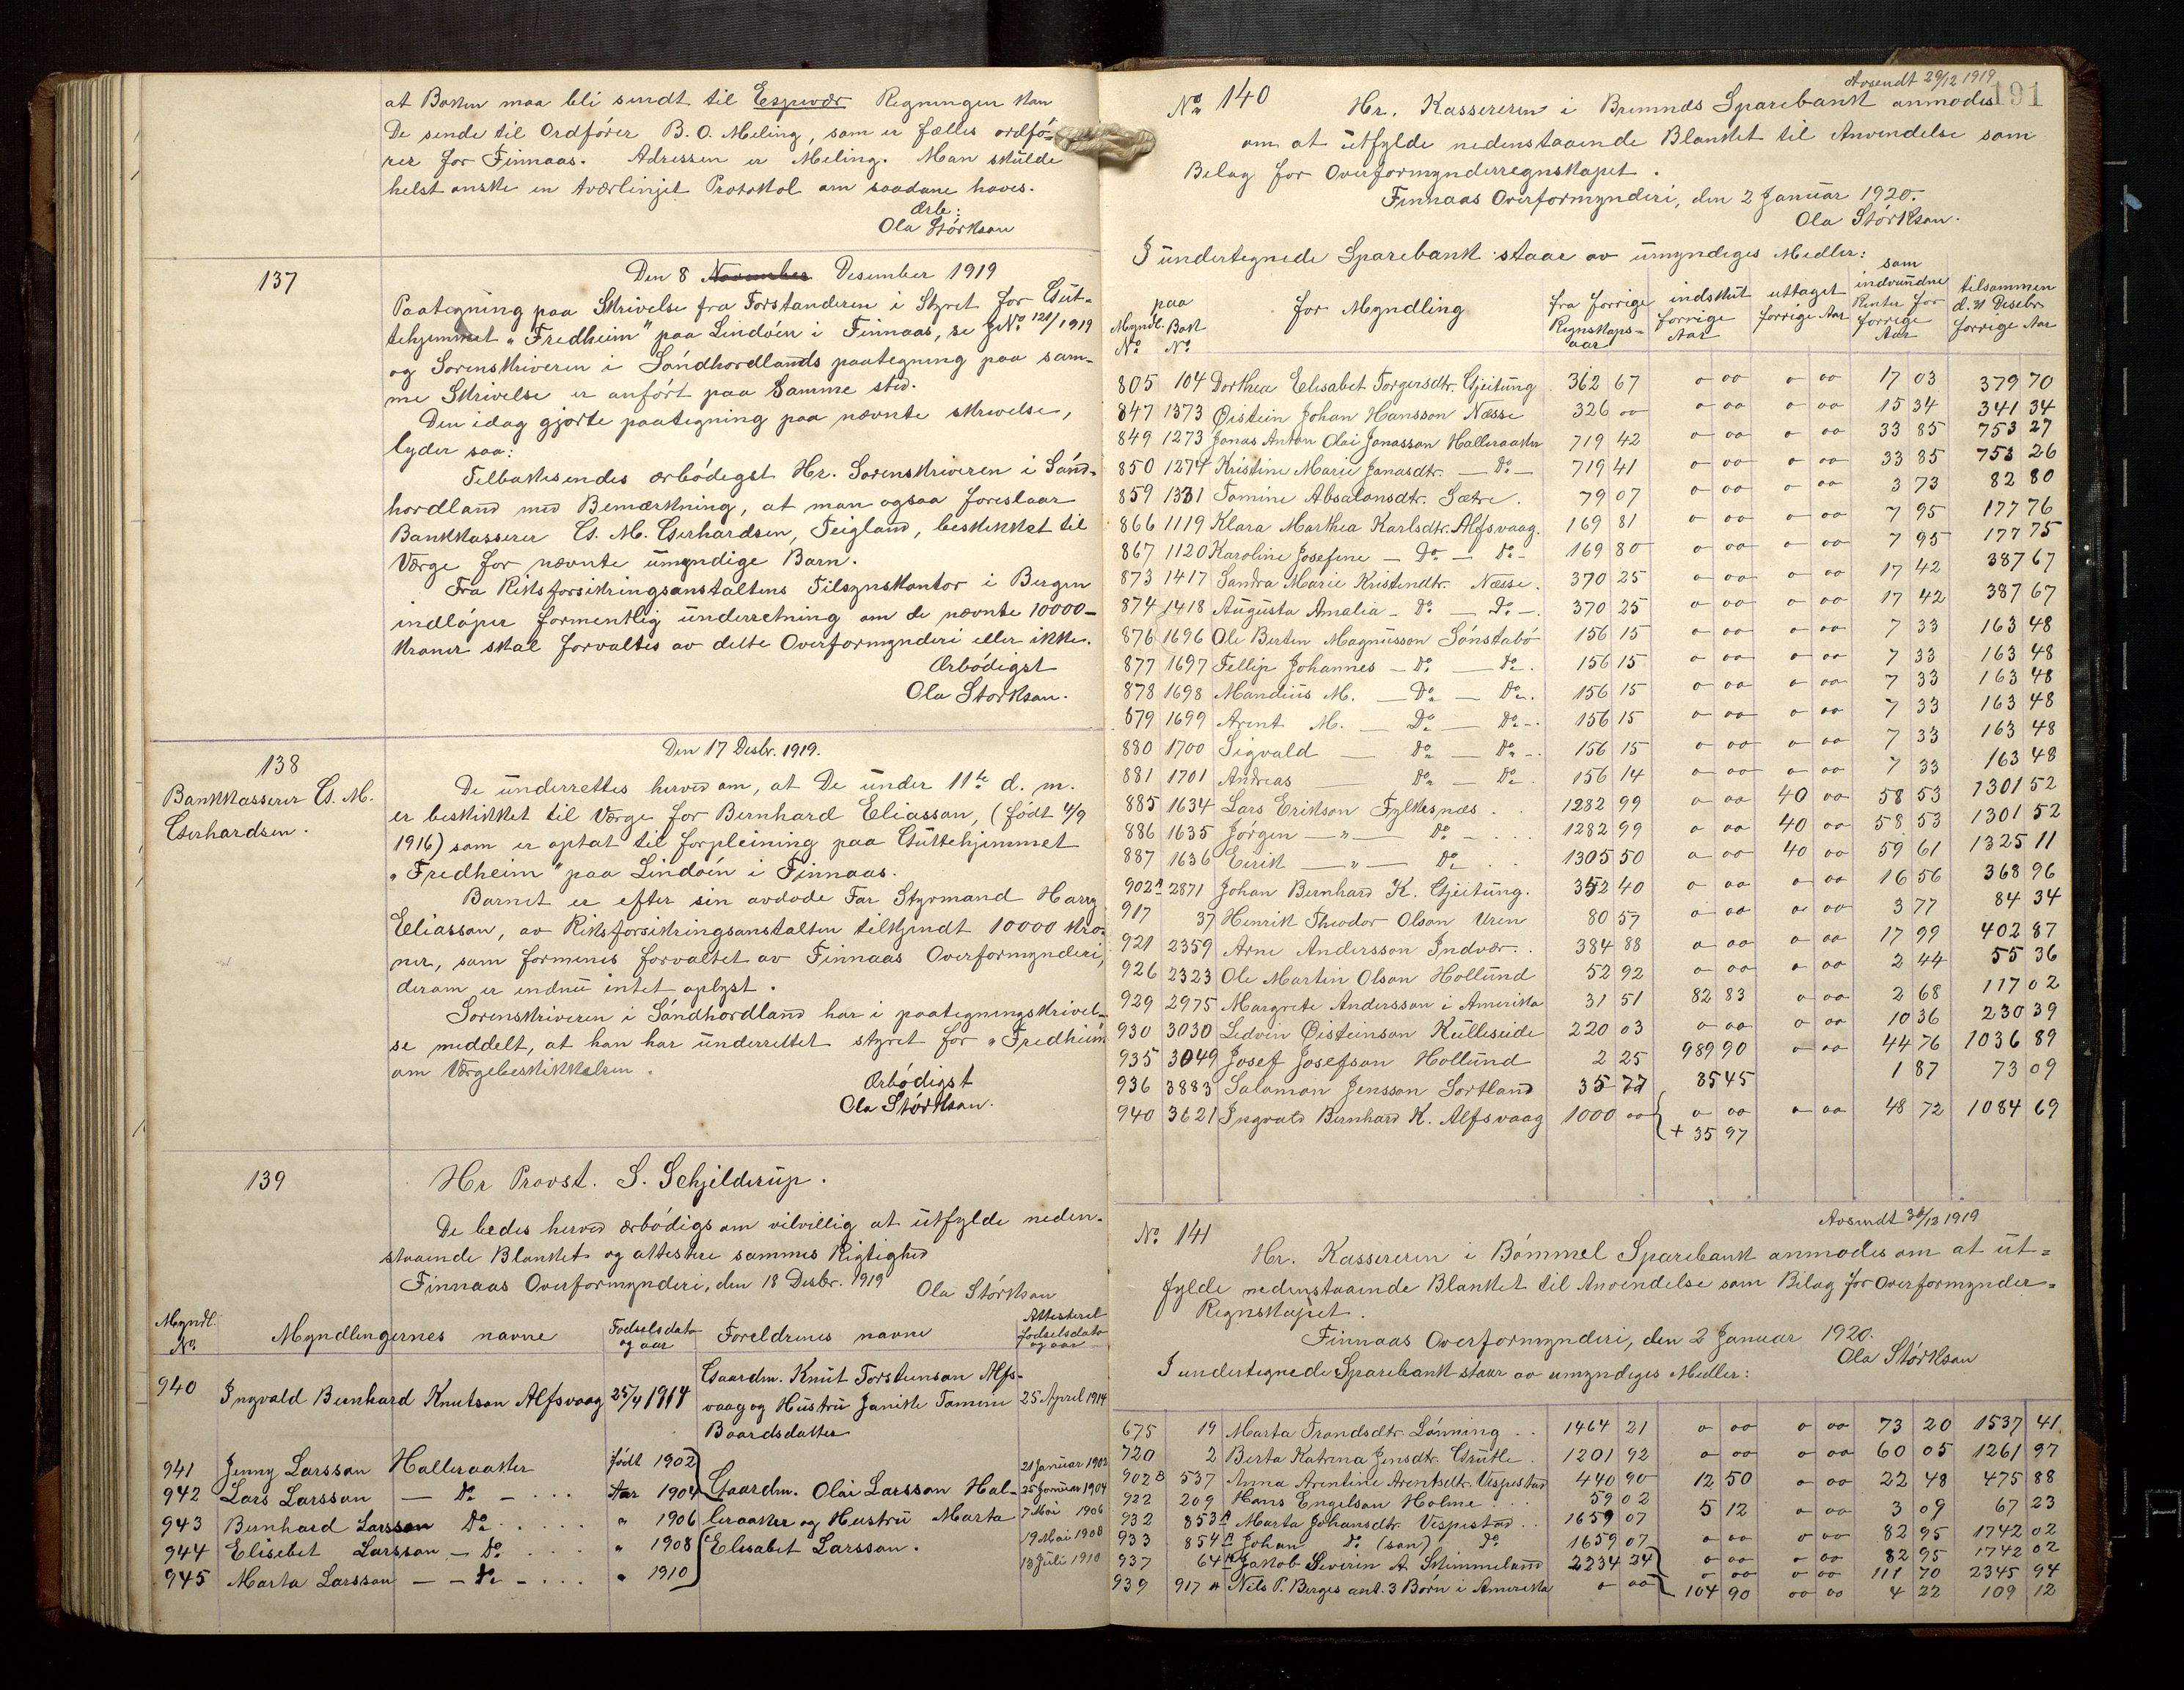 at Boken maa bli sendt til Espevær Regningen kan
De sende til Ordfører B. O. Meling, som er fælles ordfø-
rer for Finnaas. Adressen er Meling. Man skulde
helst ønske en tværlinjet Protokol om saadane haves.
Ærb:
Ola Størkson
137
Den 8 November Desember 1919
Paategning paa Skrivelse fra Forstanderen i Styret for Gut-
tehjemmet "Fredheim" paa Lindøen i Finnaas, se JNo. 121/1919
og Sorenskriveren i Søndhordlands paategning paa sam-
me Skrivelse er anført paa Samme sted.
Den idag gjorte paategning paa nævnte skrivelse,
lyder saa:
Tilbakesendes ærbødigst Hr. Sorenskriveren i Sønd-
hordland med Bemærkning, at man ogsaa foreslaar
Bankkasserer G. M. Gerhardsen, Teigland, beskikket til
Værge for nævnte umyndige Barn.
Fra Riksforsikringsanstaltens Tilsynskontor i Bergen
indløper formentlig underretning om de nævnte 10000-
kroner skal forvaltes av dette Overformynderi eller ikke.
Ærbødigst
Ola Størkson.
138
Bankkasserer G. M.
Gerhardsen.
Den 17 Desbr. 1919.
De underrettes herved om, at De under 11te d. m.
er beskikket til Værge for Bernhard Eliasson, (født 4/9
1916) som er optat til forpleining paa Guttehjemmet
"Fredheim" paa Lindøen i Finnaas.
Barnet er efter sin avdøde Far Styrmand Harry
Eliasson, av Riksforsikringsanstalten tilkjendt 10000 kro-
ner, som formenes forvaltet av Finnaas Overformynderi,
derom er endnu intet oplyst.
Sorenskriveren i Søndhordland har i paategningsskrivel-
se meddelt, at han har underrettet styret for "Fredheim"
om Værgebeskikkelsen.
Ærbødigst
Ola Størkson.
139
Hr Provst. S. Schjelderup.
De bedes herved ærbødigs om vilvillig at utfylde neden-
staaende Blanket og attestere sammes Rigtighed
Finnaas Overformynderi, den 18 Desbr. 1919
Ola Størkson
Myndl. No. Myndlingernes navne Fødselsdato og aar Foreldrenes navne Attesteret fødselsdato og aar
940 Ingvald Bernhard Knutson Alfsvaag 25/4 1914 Gaardm. Knut Torstenson Alfs-
vaag og Hustru Janike Tomine 25 April 1914
Baardsdatter
941 Jenny Larsson Halleraaker født 1902 21 Januar 1902
942 Lars Larsson — Do - ... Aar 1904 Gaardm. Olai Larsson Hal- 25 Januar 1904
943 Bernhard Larsson Do .... " 1906 leraaker og Hustru Marta 7 Mai 1906
944 Elisebet Larsson - Do " 1908 Elesabet Larsson. 19 Mai 1908
945 Marta Larsson — - Do - ... " 1910 13 Juli 1910
Avsendt 29/12 1919
191
No 140
Hr. Kassereren i Bremnes Sparebank anmodes
om at utfylde nedenstaaende Blanket til Anvendelse som
Belag for Overformynderregnskapet.
Finnaas Overformynderi, den 2 Januar 1920.
Ola Størkson.
I undertegnede Sparebank staar av umyndiges Medler:
Myndl. No paa Bok No for Myndling fra forrige Regnskaps-aar indskut forrige Aar uttaget forrige Aar som indvundne Renter for forrige Aar tilsammen d. 31 Desebr forrige Aar
805 104 Dorthea Elesabet Torgersdtr. Gjeitung 362 67 o oo o oo 17 03 379 70
847 1373 Øistein Johan Hansson Næsse 326 oo o oo o oo 15 34 341 34
849 1273 Jonas Anton Olai Jonasson Halleraaker 719 42 o oo o oo 33 85 753 27
850 1274 Kristine Marie Jonasdtr. — Do — 719 41 o oo o oo 33 85 753 26
859 1331 Tomine Absalonsdtr. Sætre. 79 07 o oo o oo 3 73 82 80
866 1119 Klara Marthea Karlsdtr. Alfsvaag. 169 81 o oo o oo 7 95 177 76
867 1120 Karoline Josefine — Do — Do - 169 80 o oo o oo 7 95 177 75
873 1417 Sandra Marie Kristendtr. Næsse. 370 25 o oo o oo 17 42 387 67
874 1418 Augusta Amalia - Do — Do -. 370 25 o oo o oo 17 42 387 67
876 1696 Ole Berten Magnusson Sønstabø 156 15 o oo o oo 7 33 163 48
877 1697 Fellip Johannes - Do — Do. 156 15 o oo o oo 7 33 163 48
878 1698 Mandius M. — Do — Do. 156 15 o oo o oo 7 33 163 48
879 1699 Arent M. — Do — Do -. 156 15 o oo o oo 7 33 163 48
880 1700 Sigvald — Do — Do -. 156 15 o oo o oo 7 33 163 48
881 1701 Andreas — Do — Do. 156 14 o oo o oo 7 33 163 48
885 1634 Lars Erikson Fylkesnæs . . 1282 99 o oo 40 oo 58 53 1301 52
886 1635 Jørgen — " — Do - ... 1282 99 o oo 40 oo 58 53 1301 52
887 1636 Eirik — " — Do . . 1305 50 o oo 40 oo 59 61 1325 11
902A 2871 Johan Bernhard K. Gjeitung. 352 40 o oo o oo 16 56 368 96
917 37 Henrik Theodor Olson Uren 80 57 o oo o oo 3 77 84 34
921 2359 Arne Andersson Indvær . . 384 88 o oo o oo 17 99 402 87
926 2323 Ole Martin Olson Hollund 52 92 o oo o oo 2 44 55 36
929 2975 Margrete Andersson i Amerika 31 51 82 83 o oo 2 68 117 02
930 3030 Ledvin Øisteinson Kulleseide 220 03 o oo o oo 10 36 230 39
935 3049 Josef Josefson Hollund 2 25 989 90 o oo 44 76 1036 89
936 3883 Salomon Jensson Sortland 35 77 35 45 1 87 73 09
940 3621 Ingvald Bernhard K. Alfsvaag 1000 oo o oo o oo 48 72 1084 69
+ 35 97
Avsendt 30/12 1919
No. 141
Hr. Kassereren i Bømmel Sparebank anmodes om at ut-
fylde nedenstaaende Blanket til Anvendelse som Bilag for Overformynder-
Regnskapet.
Finnaas Overformynderi, den 2 Januar 1920.
Ola Størkson
I undertegnede Sparebank staar av umyndiges Medler:
675 19 Marta Trondsdtr. Lønning . . 1464 21 o oo o oo 73 20 1537 41
720 2 Berta Katrina Jensdtr. Grutle. 1201 92 o oo o oo 60 05 1261 97
902B 537 Anna Arentine Arentsdtr. Vespestad 440 90 12 50 o oo 22 48 475 88
922 209 Hans Engelson Holme ... 59 02 5 12 o oo 3 09 67 23
932 853A Marta Johansdtr. Vespestad . . 1659 07 o oo o oo 82 95 1742 02
933 854A Johan Do (søn) Do 1659 07 o oo o oo 82 95 1742 02
937 64A Jakob Severin A. Skimmeland 2234 24 o oo o oo 111 70 2345 94
939 917A Nils P. Berges ant. 3 Børn i Amerika o oo 104 90 oo oo 4 22 109 12